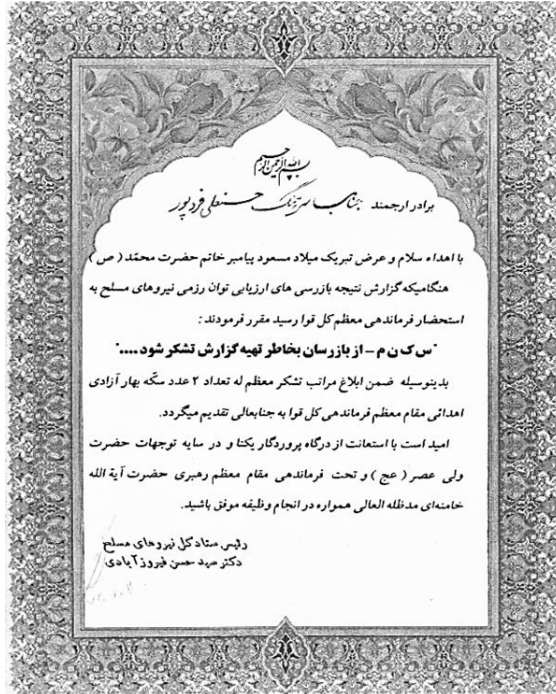 بسم الله الرحمن الرحیم
برادر ارجمند جناب سرهنگ حسنعلی فردپور
با اهداء سلام و عرض تبریک میلاد مسعود پیامبر خاتم حضرت محمّد ( ص )
هنگامیکه گزارش نتیجه بازرسی های ارزیابی توان رزمی نیروهای مسلح به
استحضار فرماندهی معظم کل قوا رسید مقرر فرمودند :
"س ک ن م – از بازرسان بخاطر تهیه گزارش تشکر شود ...."
بدینوسیله ضمن ابلاغ مراتب تشکر معظم له تعداد ۲ عدد سکّه بهار آزادی
اهدائی مقام معظم فرماندهی کل قوا به جنابعالی تقدیم میگردد.
امید است با استعانت از درگاه پروردگار یکتا و در سایه توجهات حضرت
ولی عصر ( عج ) و تحت فرماندهی مقام معظم رهبری حضرت آیة الله
خامنه‌ای مدظله العالی همواره در انجام وظیفه موفق باشید.
رئیس ستاد کل نیروهای مسلح
دکتر سید حسن فیروزآبادی